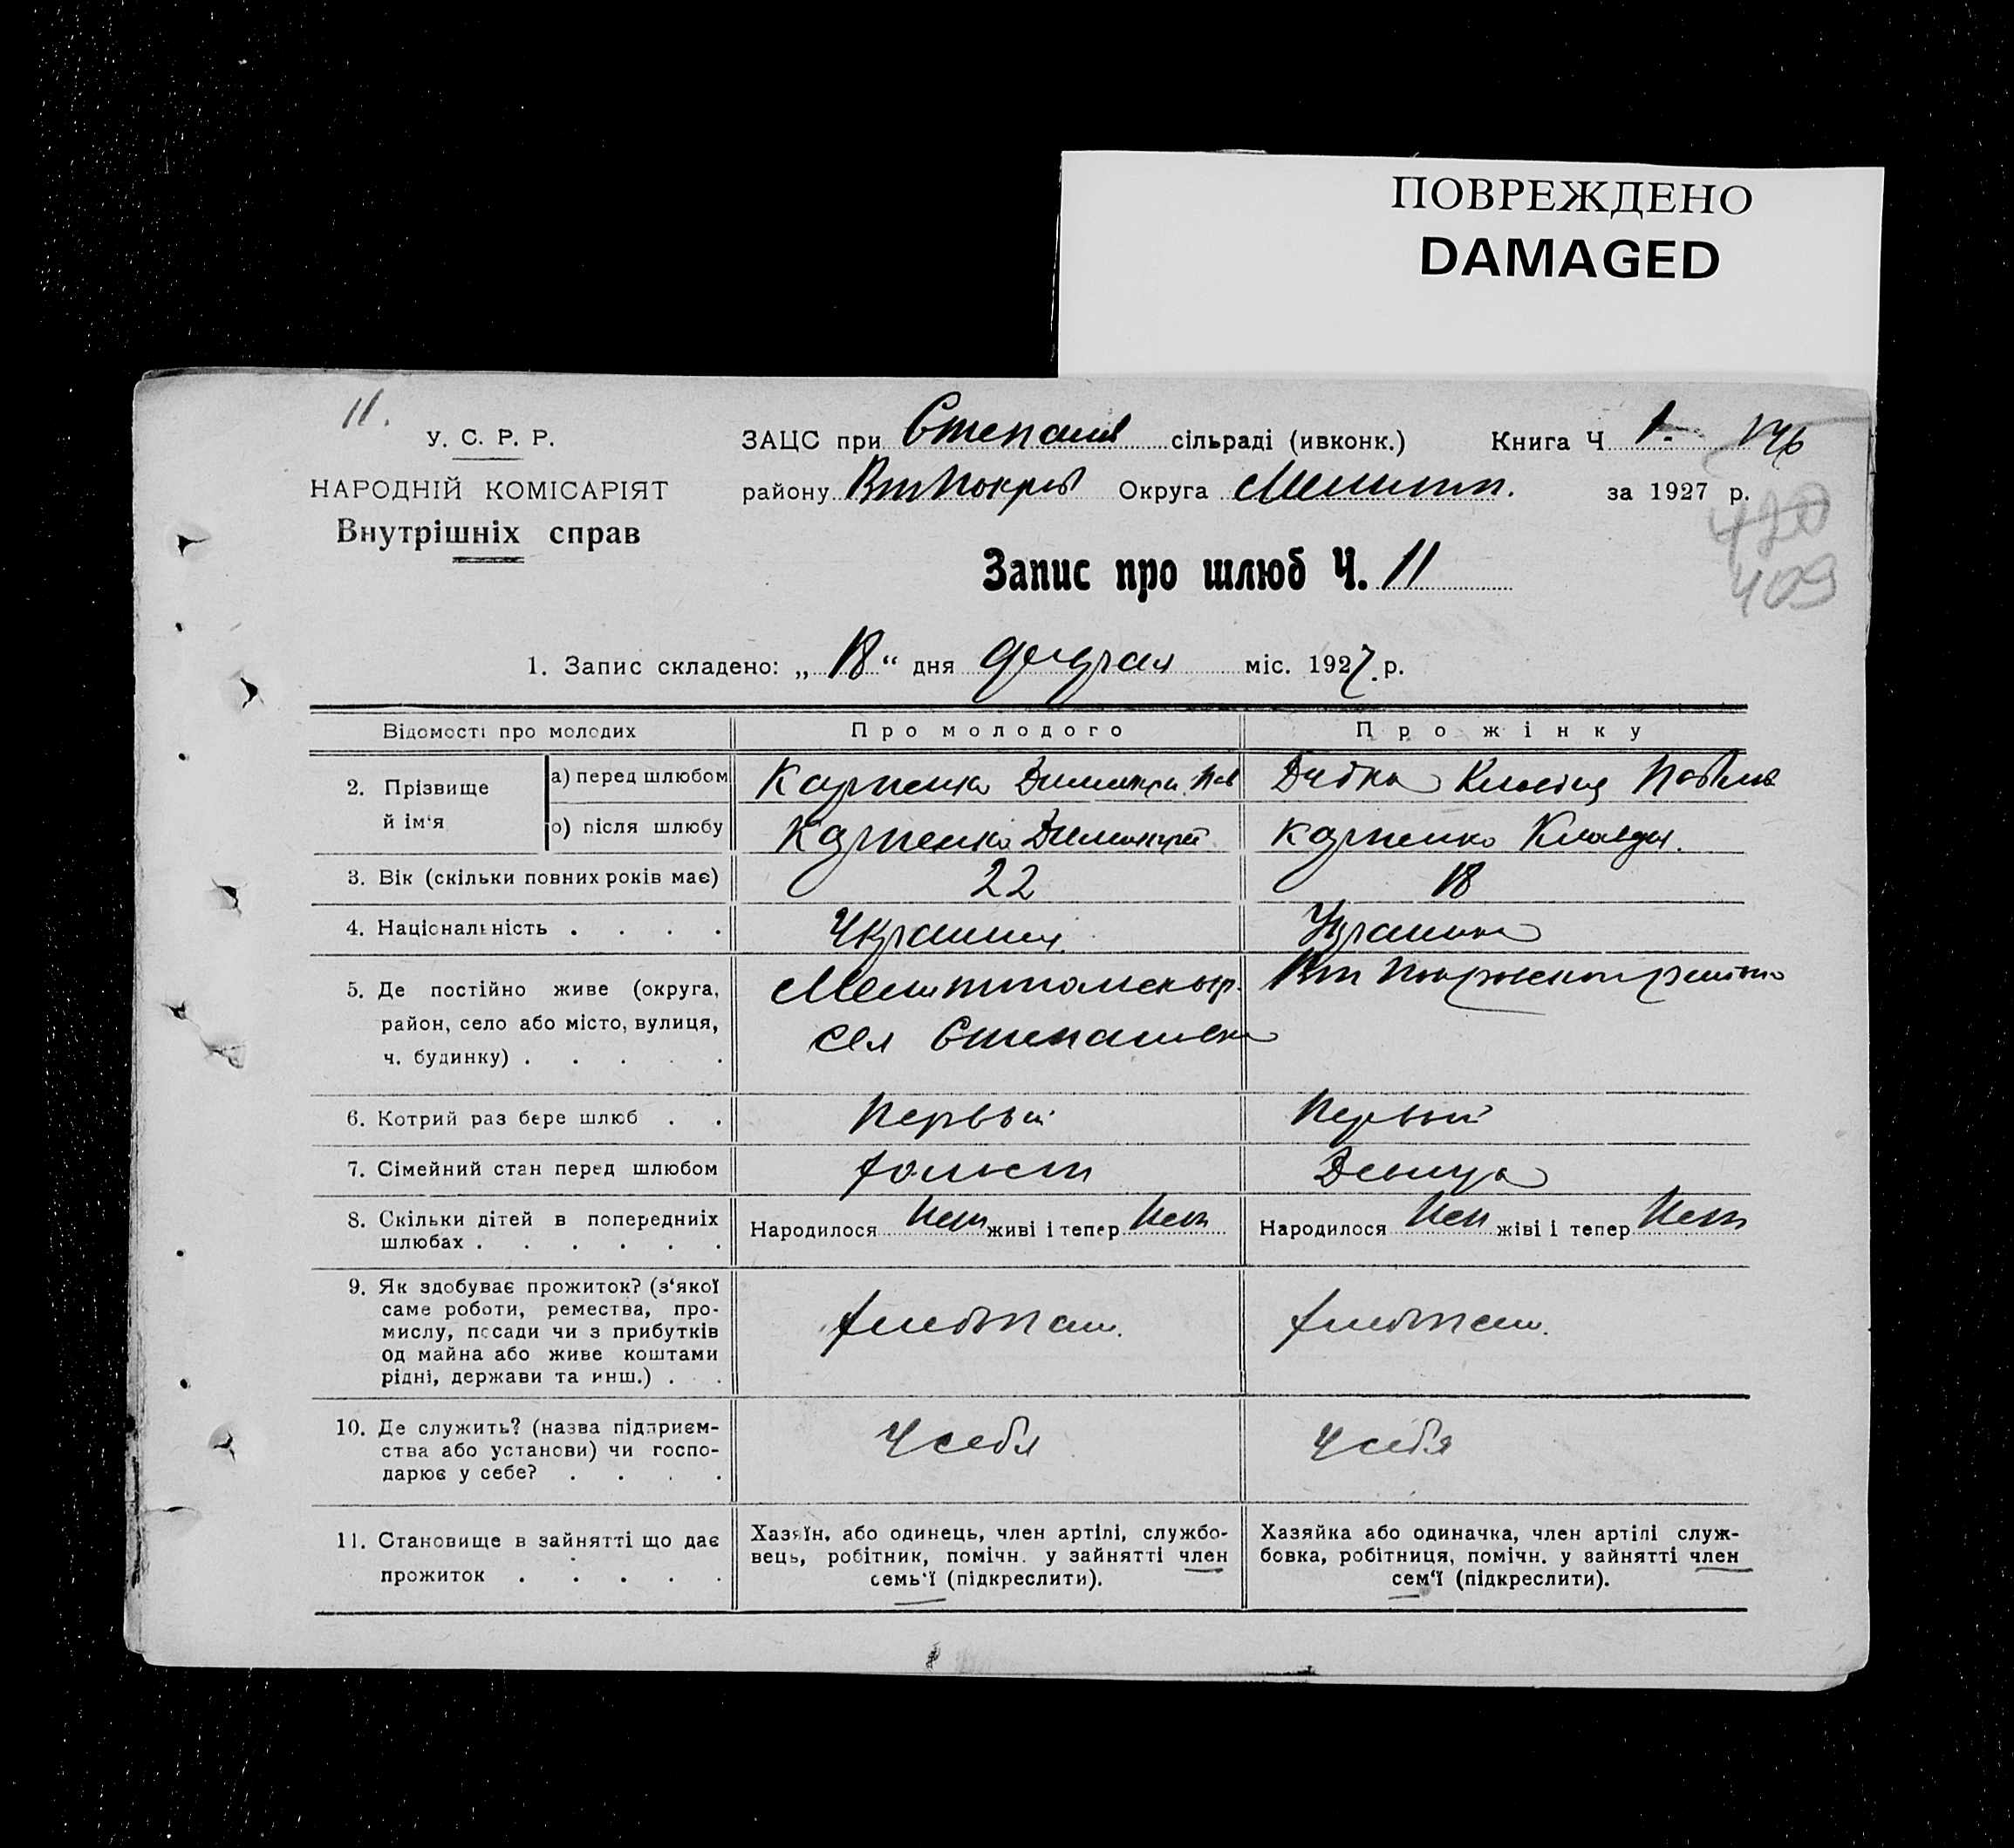 ПОВРЕЖДЕНО
DAMAGED
11.
У. С. Р. Р.
НАРОДНІЙ КОМІСАРІЯТ
Внутрішніх справ
ЗАЦС при Степанів сільраді (ивконк.) Книга Ч 1.
району Вт Покрів Округа Мелитоп. за 1927 р.
420
409
Запис про шлюб Ч. 11
1. Запис складено: „ 18 “ дня февраля міс. 1927. р.
Відомості про молодих Про молодого Про жінку
2. Прізвище й ім‘я
а) перед шлюбом Карпенко Димитри Пав Клавдия Павлов
о) після шлюбу Карпенко Димитрий Карпенко Клавдия.
3. Вік (скільки повних років має) 22 18
4. Національність . . . . Украинец Украинка
5. Де постійно живе (округа, Мелитопольск окр.
район, село або місто, вулиця, сел Степановка
ч. будинку) . . . . .
6. Котрий раз бере шлюб . . Первый Первый
7. Сімейний стан перед шлюбом холост Девица
8. Скільки дітей в попередниіх Народилося Нет живі і тепер Нет Народилося Нет жіві і тепер Нет
шлюбах . . . . . .
9. Як здобуває прожиток? (з‘якої
саме роботи, ремества, про-
мислу, посади чи з прибутків хлебопаш. хлебопаш.
од майна або живе коштами
рідні, держави та инш.) . .
10. Де служить? (назва підприєм-
ства або установи) чи госпо- У себя У себя
дарює у себе? . . . .
11. Становище в зайнятті що дає
прожиток . . . . .
Хазяїн, або одинець, член артілі, службо-
вець, робітник, помічн. у зайнятті член
семь‘ї (підкреслити).
Хазяйка або одиначка, член артілі служ-
бовка, робітниця, помічн. у зайнятті член
сем‘ї (підкреслити).